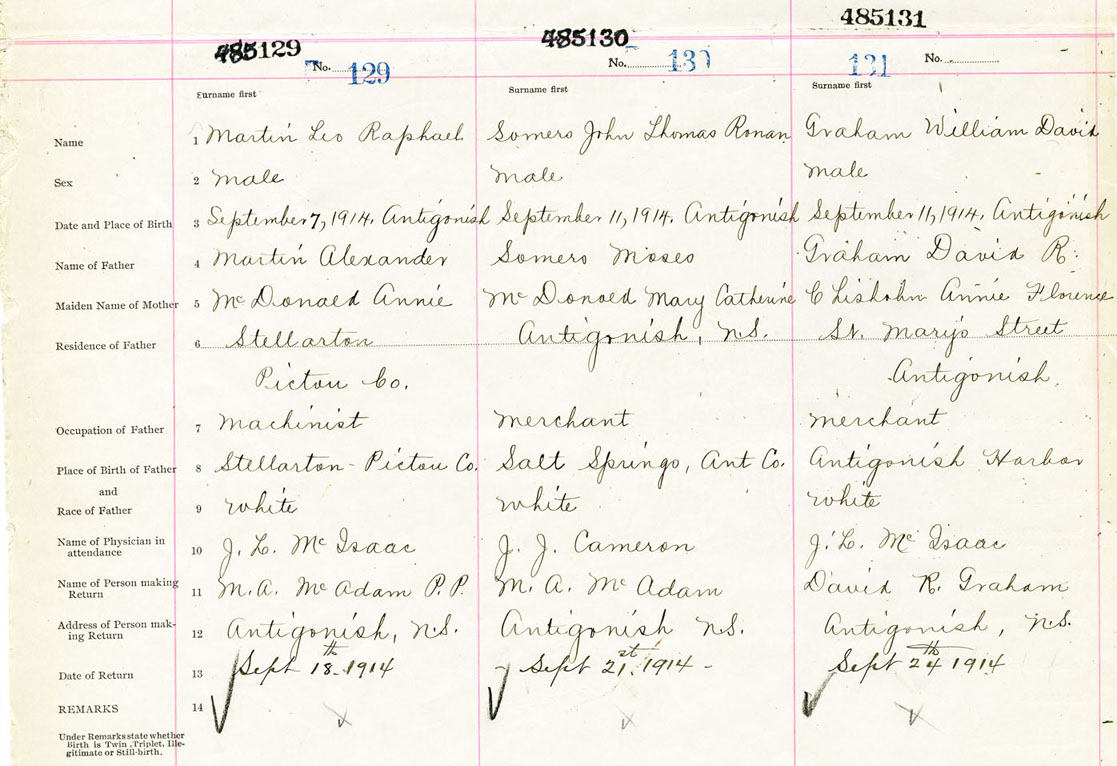 485129 485130 485131
No. 129 No. 130 131 No.
Surname first Surname first Surname first
Name 1 Martin Leo Raphael Somers John Thomas Ronan Graham William David
Sex 2 Male Male Male
Date and Place of Birth 3 September 7, 1914. Antigonish September 11, 1914. Antigonish September 11, 1914. Antigonish
Name of Father 4 Martin Alexander Somers Moses Graham David R.
Maiden Name of Mother 5 McDonald Annie McDonald Mary Catherine Chisholm Annie Florence
Residence of Father 6 Stellarton Antigonish, N.S. St. Mary's Street
Pictou Co. Antigonish.
Occupation of Father 7 Machinist Merchant Merchant
Place of Birth of Father 8 Stellarton - Pictou Co. Salt Springs, Ant Co. Antigonish Harbor
and
Race of Father 9 White White White
Name of Physician in
attendance 10 J. L. McIsaac J. J. Cameron J. L. McIsaac
Name of Person making
Return 11 M. A. McAdam P.P. M. A. McAdam David R. Graham
Address of Person mak-
ing Return 12 Antigonish, N.S. Antigonish N.S. Antigonish, N.S.
Date of Return 13 Sept 18th 1914 - Sept 21st. 1914 - Sept 24th 1914
REMARKS 14
Under Remarks state whether
Birth is Twin, Triplet, Ille-
gitimate or Still-birth.